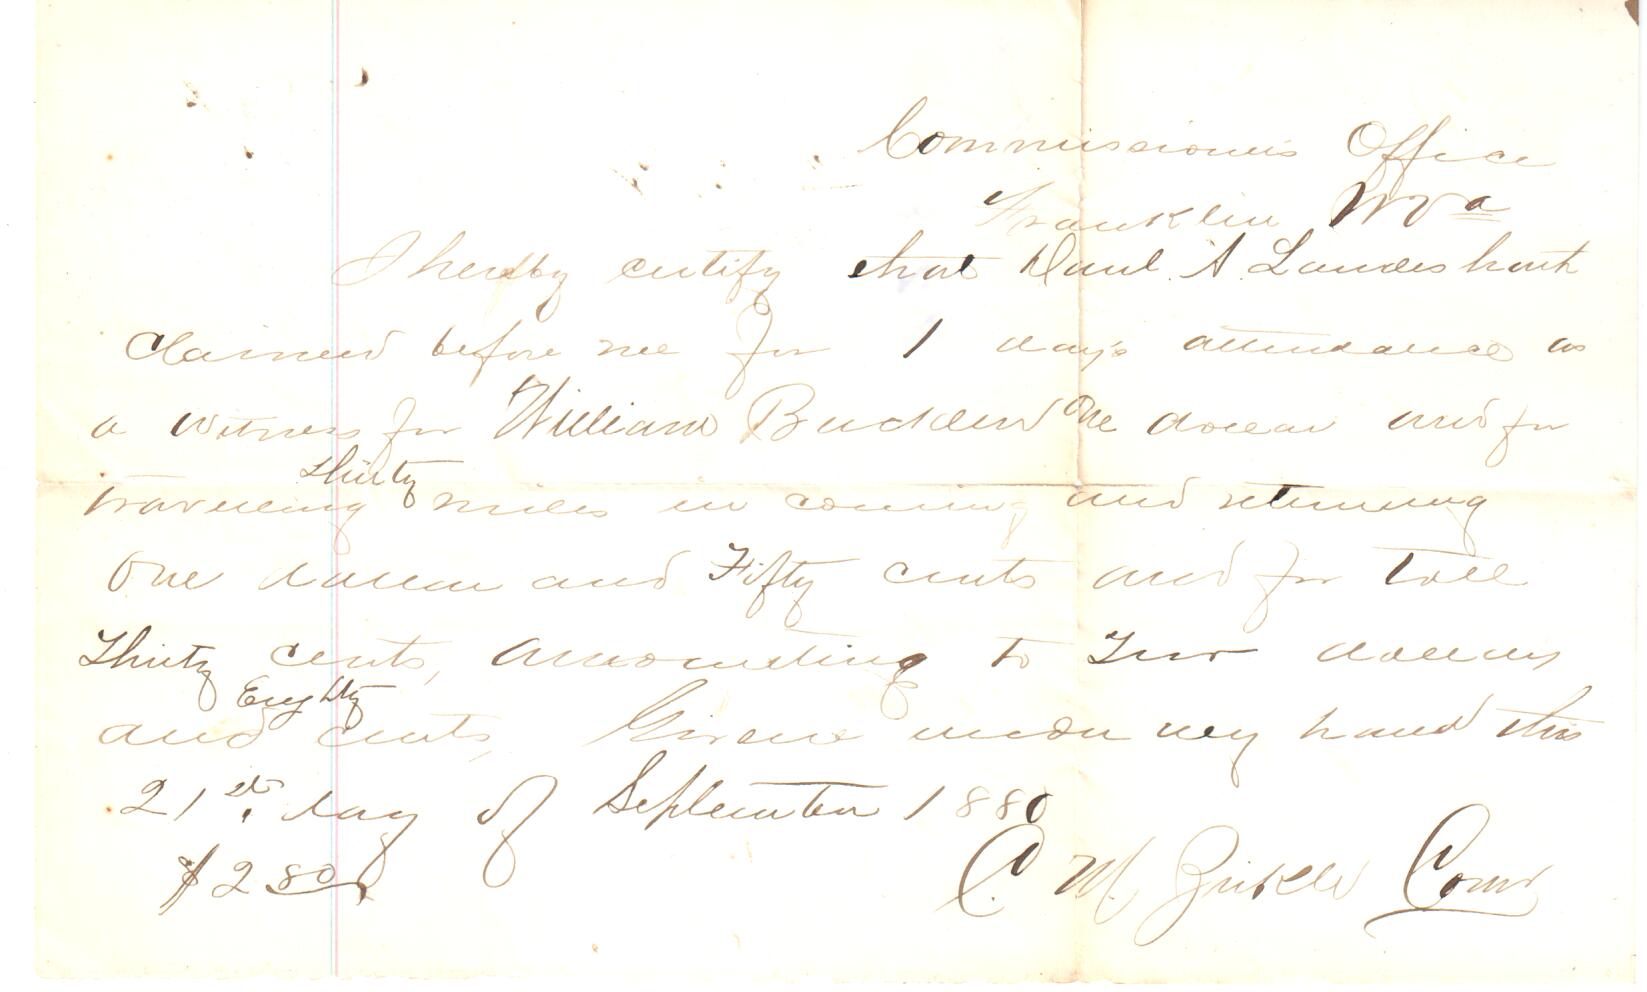 Commissioner's Office
Franklin W Va
I hereby certify that Danl. A. Landes hath
claimed before me for 1 day's attendance as
a witness for William Buckland One dollar and for
Thirty
traveling miles in coming and returning
One dollar and Fifty cents and for toll
Thirty cents, amounting to Two dollars
Eighty
and cents, Given under my hand this
21st. day of September 1880
$2 80 C. M. Zirkle Comr